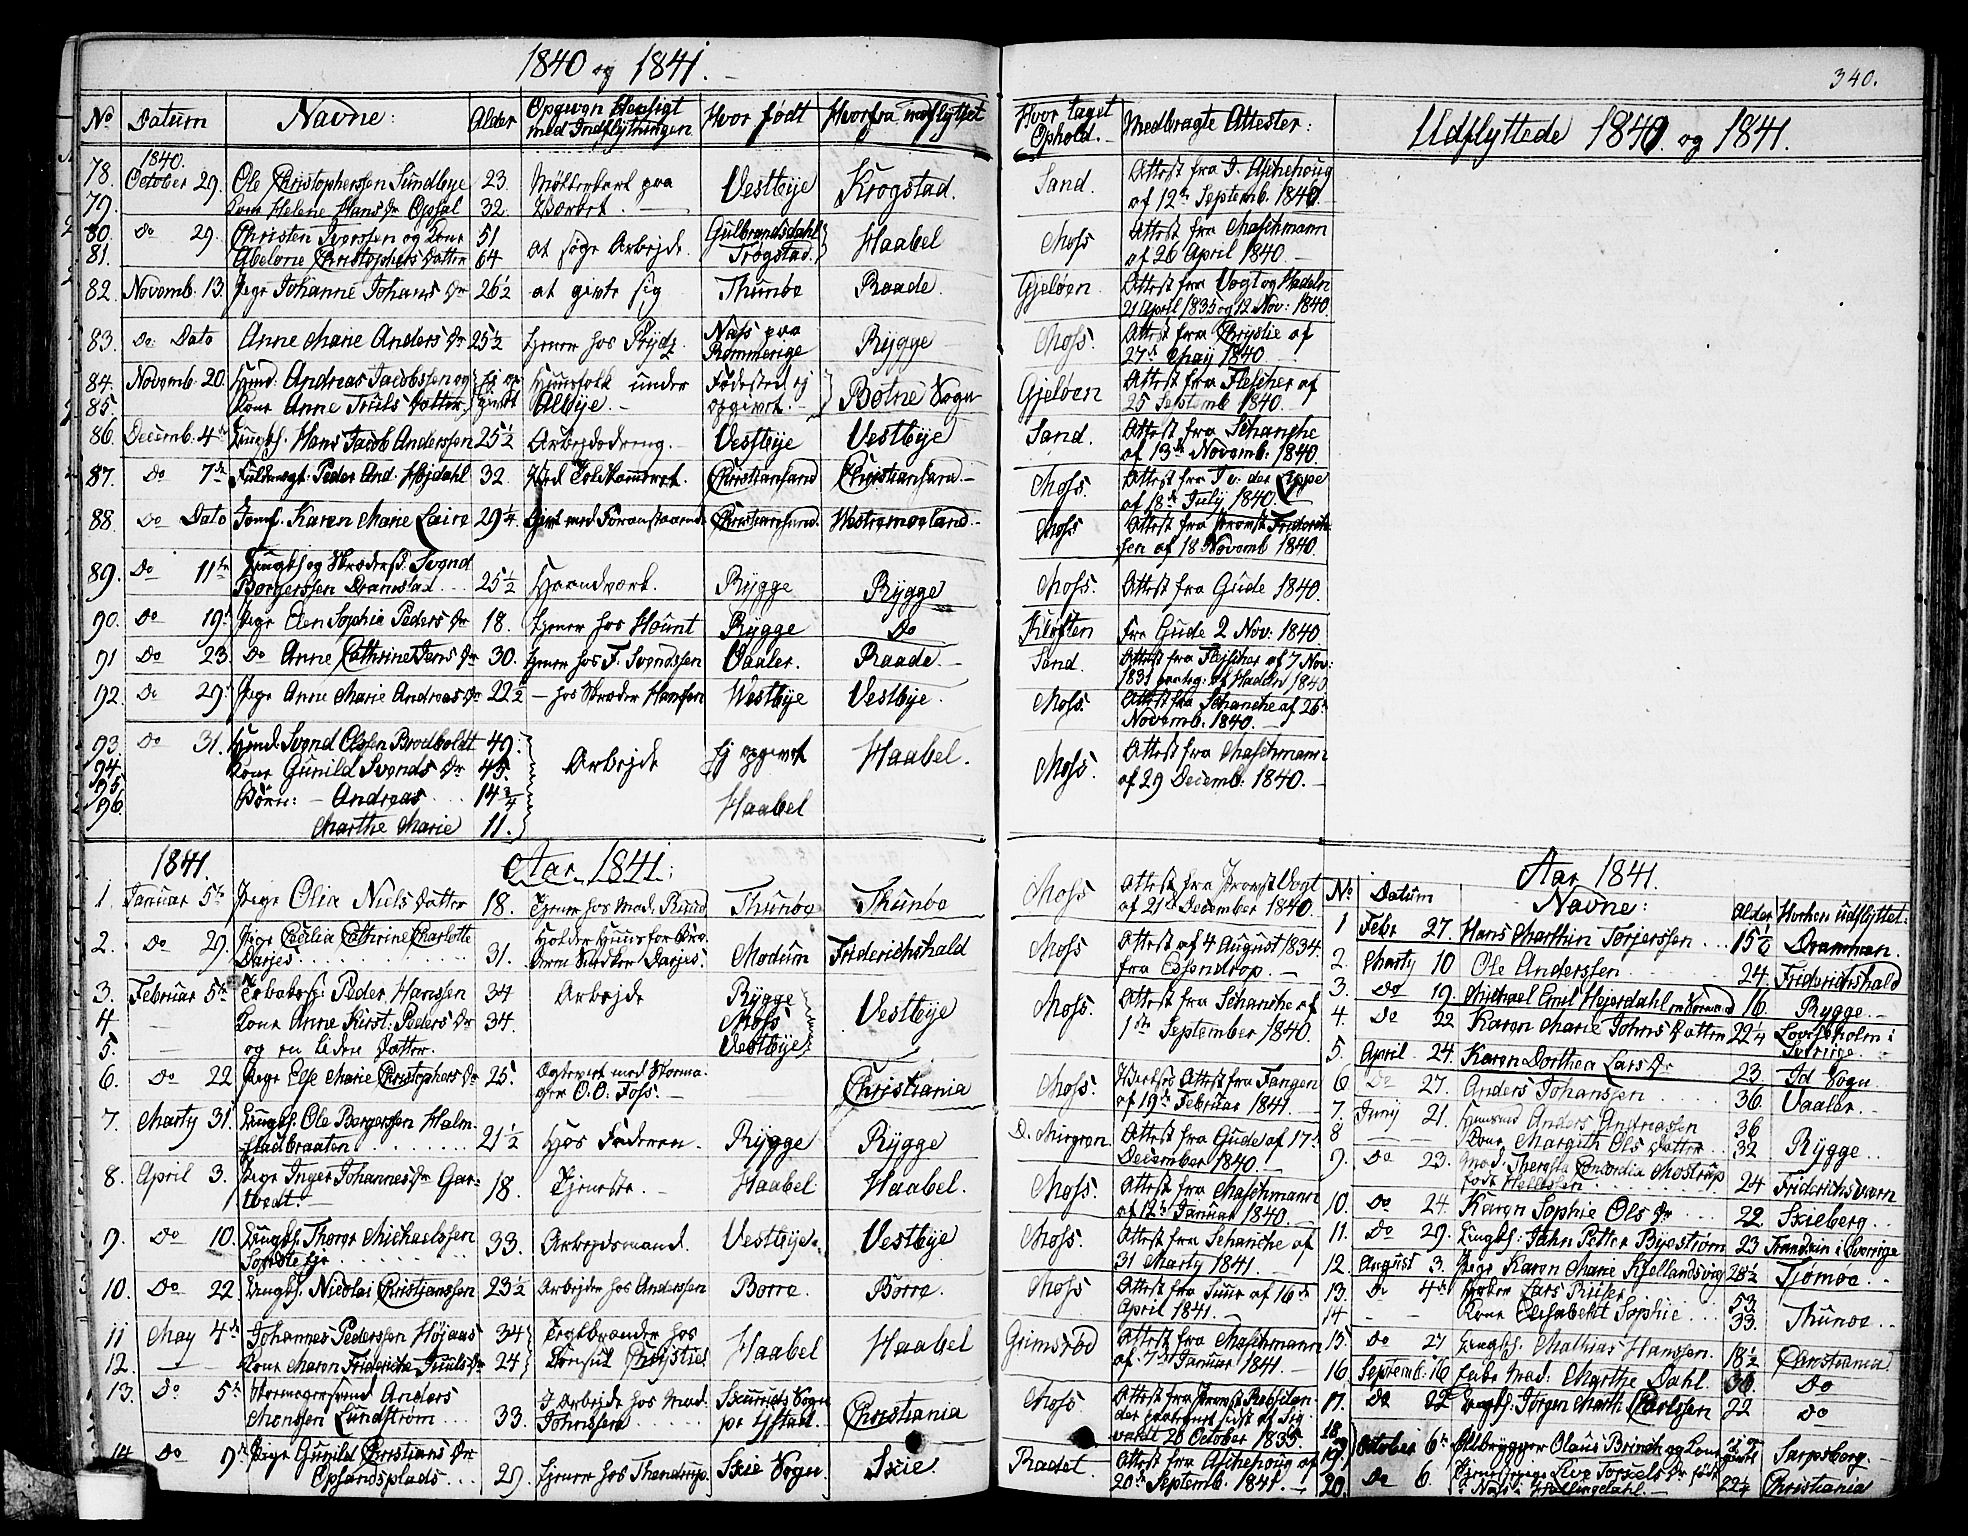 1840 og 1841.
340.
No Datum Navne: Alder Opgiven Hensigt med Indflytningen Hvor født Hvorfra indflyttet Hvor taget Ophold. Medbragte Attester:
Udflyttede 1840 og 1841.
1840.
78. October 29. Ole Christophersen Sundbye 23. paa Vestbye Krogstad. Sand. Attest fra J. Aschehoug
79. Kone Helene Hans Dr Opsal 32. af 12te Septemb. 1840.
80 Do 29. Christen Iverssen og Kone 51 at søge Arbejde Gulbrandsdahl Haabel Moss Attest fra Maschmann
81. Abelone Christophers Datter 64 Trøgstad. af 26 April 1840.
82. Novemb. 13. Pige Johanne Johans Dr 26½ at givte sig Thunøe Raade. Gjeløen Attest fra Vogt og Hadeln
21 April 1835 og 12 Nov: 1840.
83. Do Dato Anne Marie Anders Dr 25½ tjener hos Prydz Næs paa Rommerige Rygge Moss. Attest fra Chrystie af
27de May 1840
84. Novemb. 20. Hmd. Andreas Jacobssen og ej op Huusfolk under Fødested ej Botne Sogn Gjeløen Attest fra Fleischer af
85. Kone Anne Truls Datter givet Albye. opgivet. 25 Septemb 1840.
86. Decemb. 4de Ungk. Hans Jacob Anderssen 25½ Arbejdsdreng. Vestbye Vestbye Sand. Attest fra Schanche
af 13de Novemb. 1840.
87. Do 7de Fuldmægt: Peder And: Højdahl 32. Ved Toldkammeret. Christiansand Christiansand. Moss. Attest fra J v: der Lippe
af 18de July 1840.
88. Do Dato Jomf. Karen Marie Laire 29¼ Givt med Foranstaaende Christiansand. Westremoeland. Moss Attest fra Provst Friderich-
sen af 18 Novemb 1840.
89. Do 11te Ungk og Skrædersd. Svend
Borgerssen Dramstad 25½ Haandværk. Rygge Rygge Moss. Attest fra Gude 1840.
90. Do 19. Pige Elen Sophie Peders Dr 18. tjener hos Hount Rygge Do Kløften Fra Gude 2 Nov: 1840
91 Do 23. Do Anne Cathrine Jens Dr 30. tjener hos F. Svendssen Vaaler. Raade. Sand. Attest fra Flejscher af 7 Nov:
1831 paateg: af Hadeln 1840
92. Do 29. Pige Anne Marie Andreas Dr 22½ — hos Skræder Hanssen Westbye Vestbye. Moss. Attest fra Schanche af 26
Novemb. 1840.
93. Do 31. Hmd. Svend Olssen Brodboldt 49. Arbejde ej opgivet Haabel. Moss. Attest fra Maschmann
94. Kone Gunild Svends Dr 45. af 29 Decemb: 1840.
95. Børn: — Andreas 14¾ Haabel
96. Marthe Marie 11.
1841. Aar 1841.
1. Januar 5te Pige Olia Niels Datter 18. Tjener hos Mad. Thunøe Thunøe Moss Attest fra Provst Vogt
af 21de December 1840.
2. Do 29. Pige Cecilia Cathrine Charlotte
Darjes 31. Holder Huus for Bro-
deren Darjes. Modum Friderichshald Moss Attest af 4 August 1834.
fra Essendrop.
3. Februar 5te Peder Hanssen 34 Arbejde Rygge Vestbye Moss. Attest fra Schanche af
4 Kone Anne Kirst: Peders Dr 34. Moss 1ste September 1840.
5. og en liden Datter. Vestbye
6. Do 22 Pige Else Marie Christophers Dr 25. Ægteviet med Skoma-
ger O. O. Foss. Christiania Moss. Attest fra Fangen
af 19de Februar 1841.
7. Marty 31. Ungk. Ole Borgerssen Halm-
stadbraaten 21½ Hos Faderen. Rygge Rygge Attest fra Gude af 17
December 1840.
8. April 3. Pige Inger Johannes Dr Gar-
tvedt. 18. Tjeneste. Haabel Haabel. Moss. Attest fra Maschmann
af 12te Januar 1840.
9. Do 10. Ungk. Thorer Michaelssen 33. Arbejdsmand. Vestbye. Vestbye Moss. Attest fra Schanche af
31 Marty 1841.
10. Do 22. Ungk. Nicolai Christianssen 23½ Arbejder hos Anderssen Borre. Borre. Moss Attest fra af 16de
April 1841.
11 May 4de Johannes Pederssen Højaas 34 Teglbrænder hos Haabel Haabel Grimsrød Attest fra Maschmann
12. Kone Maren Friderikke Juuls Dr 24 Consul Chrystie af 7de Januar 1841.
13. Do 5te Skomagersvend Anders
Monsen Lundstrøm 33. I Arbejde hos Mad.
Johnssen Sogn
pr Ystad. Christiania Moss Attest fra Provst
20 October 1835.
14 Do 9de Pige Gunild Christians Dr
Opsandsplads 29. tjener hos Thendrup. Skie Sogn Skie. Radset. Attest fra Aschehoug af
20de Septemb. 1841.
Aar 1841.
No Datum Navne: Alder Hvorhen udflyttet:
1 Febr 27. Hans Marthin Torjerssen 15½ Drammen.
2. Marty 10 Ole Anderssen 24. Friderichshald
3. Do 19. Michael Emil Hejerdahl 16. Rygge.
4. Do 22 Karen Marie Johns Datter 22¼ i Sverige.
5. April 24. Karen Dorthea Lars Dr 23 Id Sogn
6 Do 27. Anders Johanssen 36. Vaaler.
7. Juny 21. Huusmd Anders Andreassen 36
8 Kone Margith Ols Datter 32 Rygge.
9. Do 23. Mad: Theresia Concordia Mostrup
født Hellessen 24 Friderichsværn
10. Do 24. Karen Sophie Ols Dr 22. Skieberg.
11. Do 29. Ungk: John Petter Byestrøm 23 i Sverrige
12. August 3. Pige Karen Marie Kjellandsvig 28½ Tjømøe.
13. Do 4de Lars 53.
14 Kone Elisabeth Sophie 33. Thunøe.
15. Do 27 Ungk. Mathias Hanssen. 18½ Christiania
16 Septemb. 16 Mad: Marthe Dahl. 36 Do
17. Do 22 Ungk. Jørgen Marth: Carlssen 22 Do
18
19 October 6te Ølbrygger Olaus Brinch og Kone ej op
givet Sarpsborg.
20. Do 6. Tjenestepige Live Torkels Dr født
i Næs i Hallingdahl. 22¼ Christiania